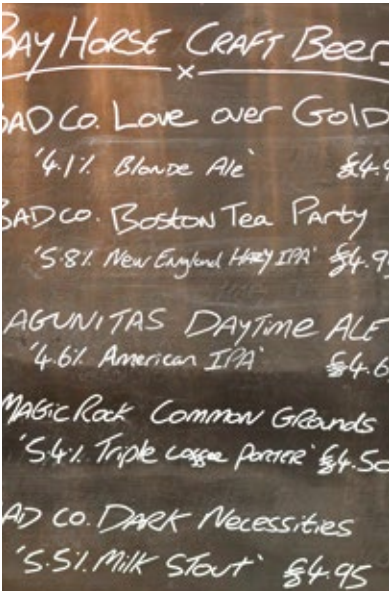 BAY HORSE CRAFT BEER
BAD Co. Love over Gold
'4.1% Blonde Ale' £4.9
BAD CO. Boston Tea Party
'5.8% New England HAZY IPA' £4.9
AGUNITAS DAYTIME ALE
'4.6% American IPA' £4.6
MAGIC ROCK COMMON GROUNDS
'5.4% Triple COFFEE PORTER' £4.50
AD CO. DARK Necessities
'5.5% Milk Stout' £4.95